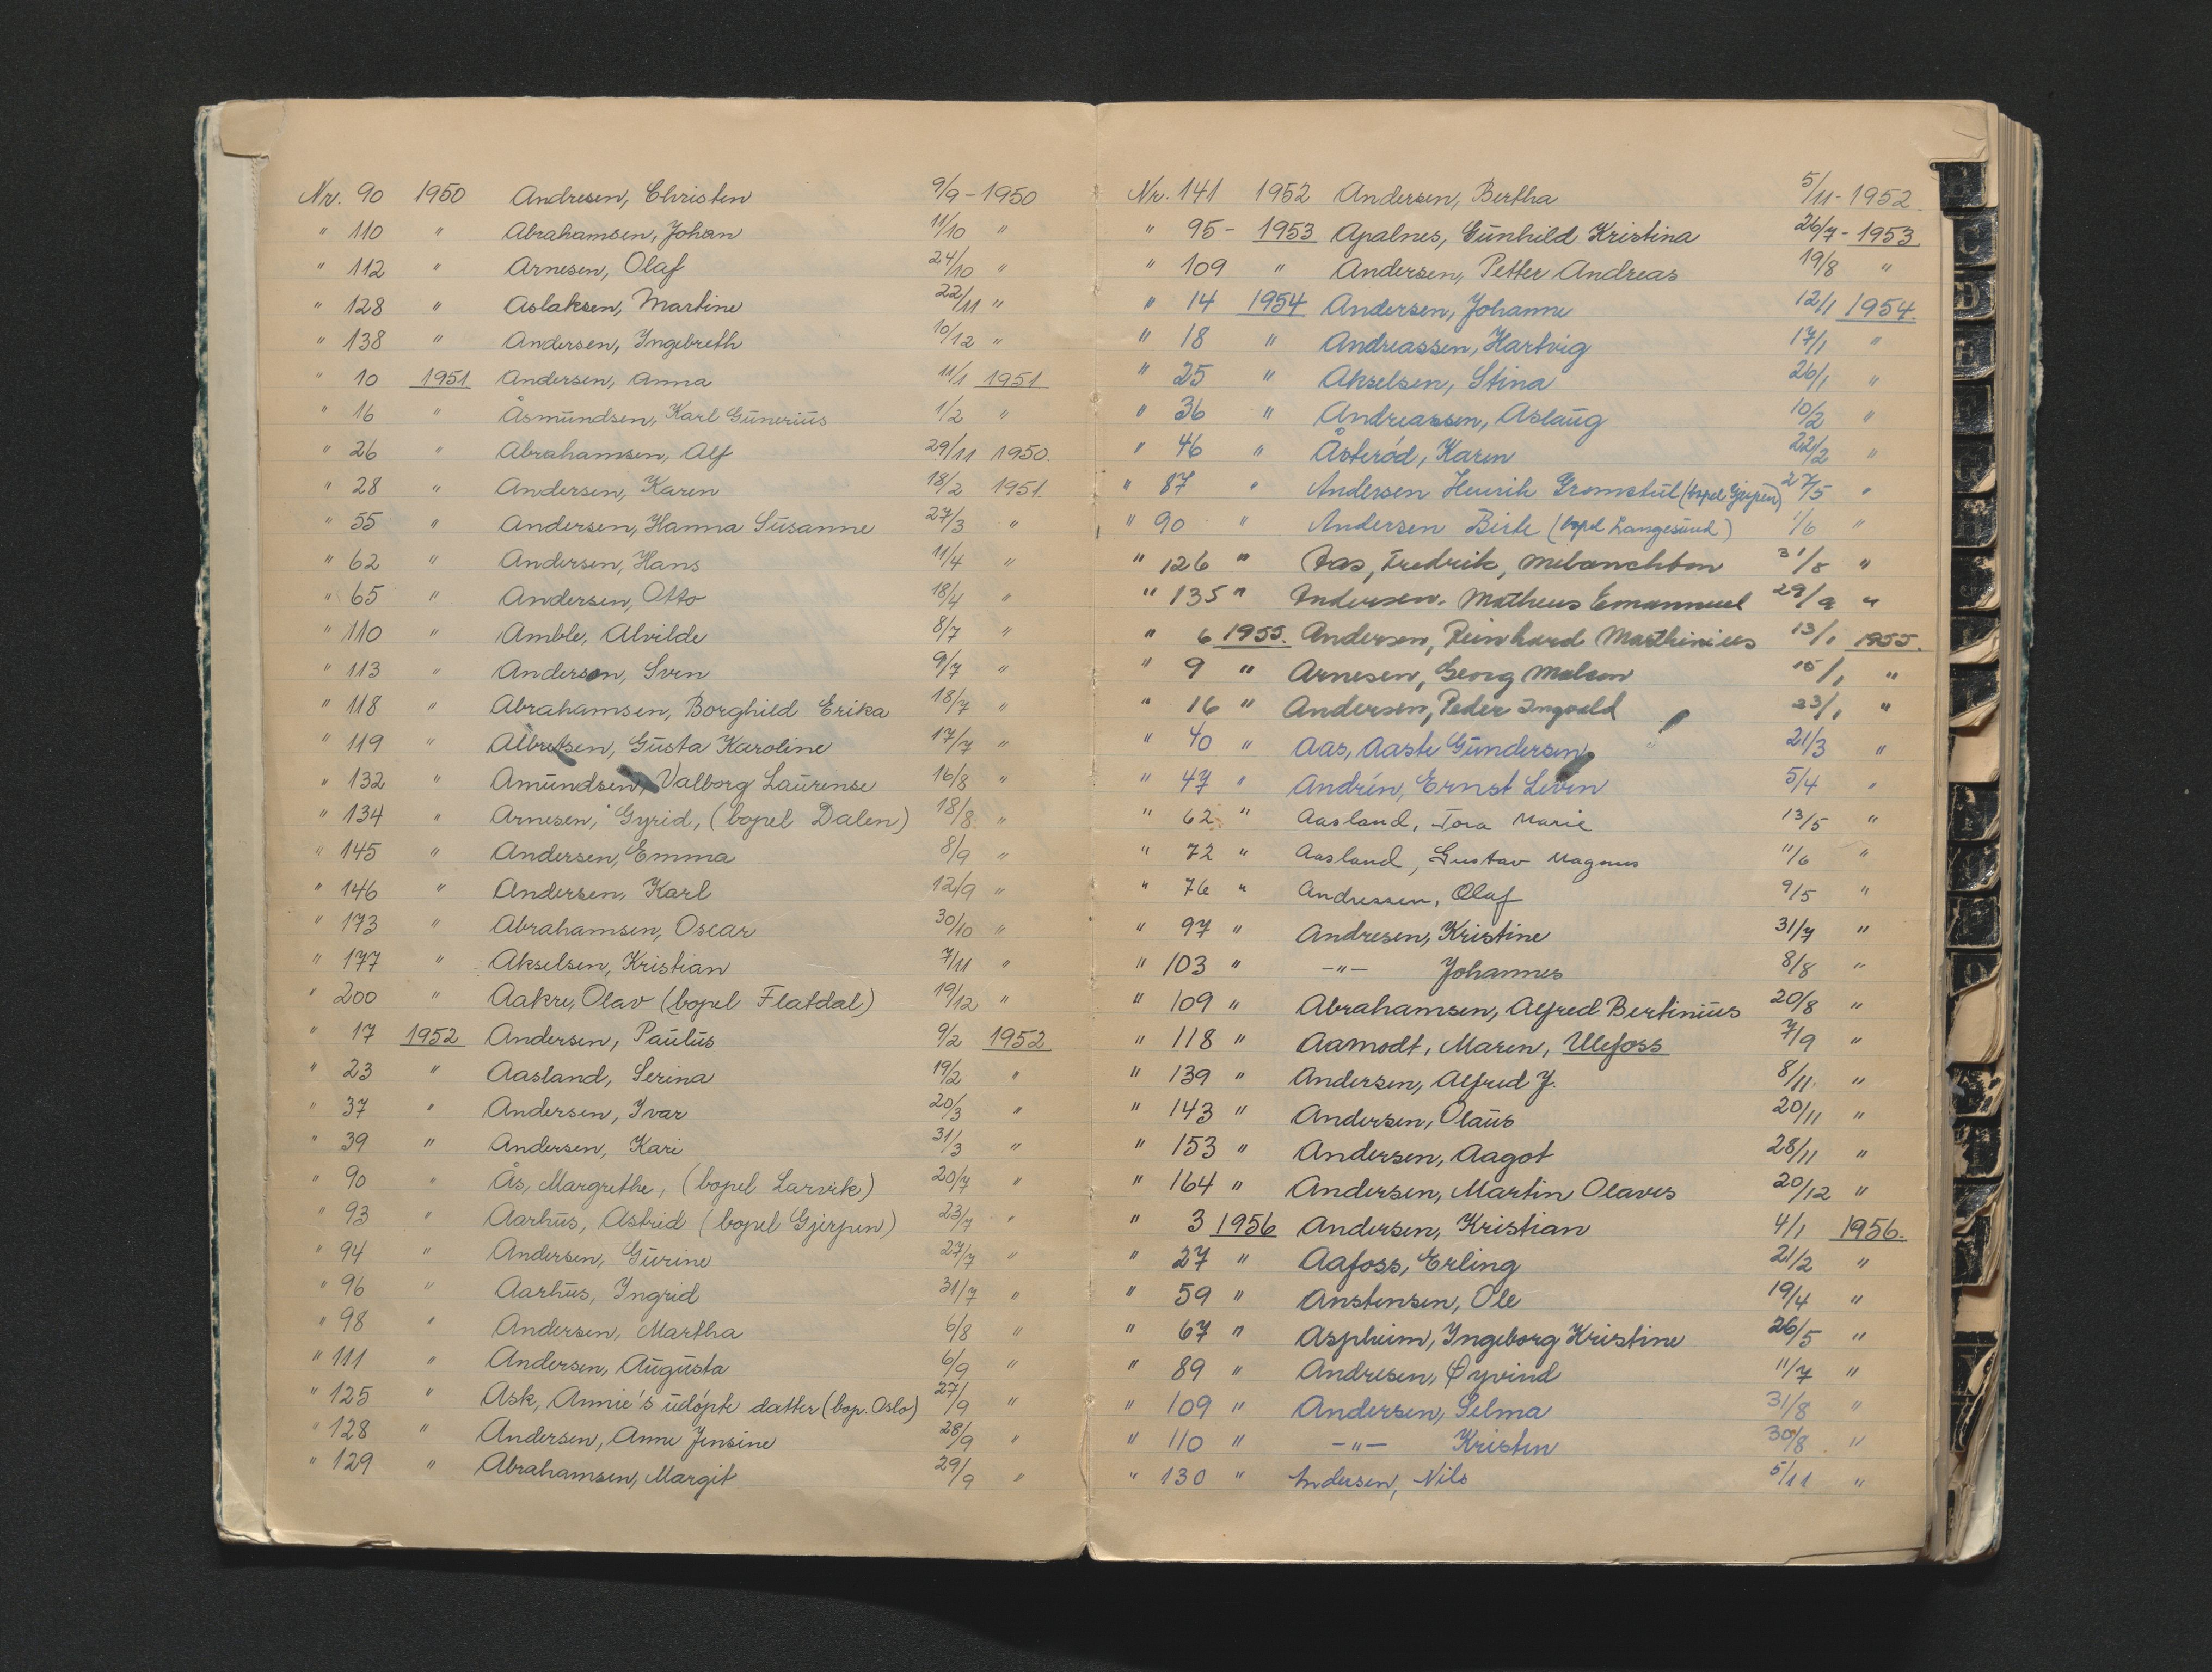 Nr. 90 1950 Andresen, Christen 9/9 - 1950
" 110 " Abrahamsen, Johan 11/10 "
" 112 " Arnesen, Olaf 24/10 "
" 128 " Aslaksen, Martine 22/11 "
" 138 " Andersen, Ingebreth 10/12 "
" 10 1951 Andersen, Anna 11/1 1951.
" 16 " Åsmundsen, Karl Gunerius 1/2 "
" 26 " Abrahamsen, Alf 29/11 1950.
" 28 " Andersen, Karen 18/2 1951.
" 55 " Andersen, Hanna Susanne 27/3 "
" 62 " Andersen, Hans 11/4 "
" 65 " Andersen, Otto 18/4 "
" 110 " Amble, Alvilde 8/7 "
" 113 " Anderson, Sven 9/7 "
" 118 " Abrahamsen, Borghild Erika 18/7 "
" 119 " Albretsen, Gusta Karoline 17/7 "
" 132 " Amundsen, Valborg Laurense 16/8 "
" 134 " Arnesen, Gyrid, (bopel Dalen) 18/8 "
" 145 " Andersen, Emma 8/9 "
" 146 " Andersen, Karl 12/9 "
" 173 " Abrahamsen, Oscar 30/10 "
" 177 " Akselsen, Kristian 7/11 "
" 200 " Aakre, Olav (bopel Flatdal) 19/12 "
" 17 1952 Andersen, Paulus 9/2 1952
" 23 " Aasland, Serina 19/2 "
" 37 " Andersen, Ivar 20/3 "
" 39 " Andersen, Kari 31/3 "
" 90 " Ås, Margrethe, (bopel Larvik) 20/7 "
" 93 " Aarhus, Astrid (bopel Gjerpen) 23/7 "
" 94 " Andersen, Gurine 27/7 "
" 96 " Aarhus, Ingrid 31/7 "
" 98 " Andersen, Martha 6/8 "
" 111 " Andersen, Augusta 6/9 "
" 125 " Ask, Annie's udøpte datter (bop. Oslo) 27/9 "
" 128 " Andersen, Anne Jensine 28/9 "
" 129 " Abrahamsen, Margit 29/9 "
Nr. 141 1952 Andersen, Bertha 5/11 - 1952.
" 95 - 1953 Apalnes, Gunhild Kristina 26/7 - 1953.
" 109 " Andersen, Petter Andreas 19/8 "
" 14 1954 Andersen, Johanne 12/1 1954.
" 18 " Andreassen, Hartvig 17/1 "
" 25 " Akselsen, Stina 26/1 "
" 36 " Andreassen, Aslaug 10/2 "
" 46 " Åsterød, Karen 22/2 "
" 87 " Andersen Henrik Gromstul (bopel Gjerpen) 27/5 "
" 90 " Andersen Birte (bopel Langesund) 1/6 "
" 126 " Aas, Fredrik, Melanchton 31/8 "
" 135 " Andersen. Matheus Emannuel 29/9 "
" 6 1955. Andersen, Reinhard Marthinius 13/1 1955.
" 9 " Arnesen, Georg 15/1 "
" 16 " Andersen, Peder Ingvald 23/1 "
" 40 " Aas, Aaste Gundersen 21/3 "
" 47 " Andrén, Ernst Levin 5/4 "
" 62 " Aasland, Tora Marie 13/5 "
" 72 " Aasland, Gustav Magnus 11/6 "
" 76 " Andressen, Olaf 9/5 "
" 97 " Andresen, Kristine 31/7 "
" 103 " -"- Johannes 8/8 "
" 109 " Abrahamsen, Alfred Bertinius 20/8 "
" 118 " Aamodt, Maren, Ulefoss 7/9 "
" 139 " Andersen, Alfred J. 8/11. "
" 143 " Andersen, Olaus 20/11 "
" 153 " Andersen, Aagot 28/11 "
" 164 " Andersen, Martin Olaves 20/12 "
" 3 1956 Andersen, Kristian 4/1 1956.
" 27 " Aafoss, Erling 21/2 "
" 59 " Anstensen, Ole 19/4 "
" 67 " Aspheim, Ingeborg Kristine 26/5 "
" 89 " Andresen, Øyvind 11/7 "
" 109 " Andersen, Selma 31/8 "
" 110 " -"- Kristen 30/8. "
" 130 " Andersen, Nils 5/11 "